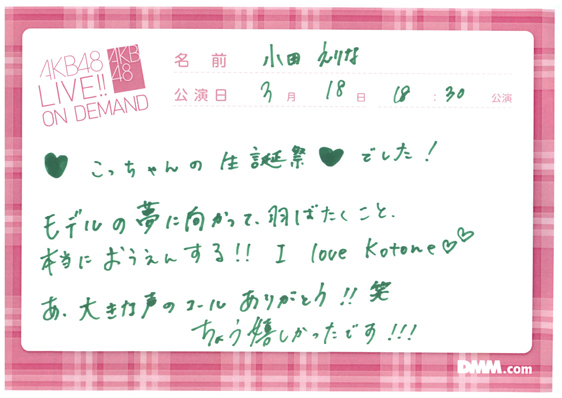 AKB48
LIVE!!
ON DEMAND
AKB
48
名前 小田 えりな
公演日 3月 18日 18:30 公演
♥ こっちゃんの 生誕祭 ♥ でした!
モデルの夢に向かって、羽ばたくこと、
本当におうえんする!! I love Kotone♡♡
あ、大きな声のコール ありがとう!! 笑
ちょう嬉しかったです!!!
DMM.com